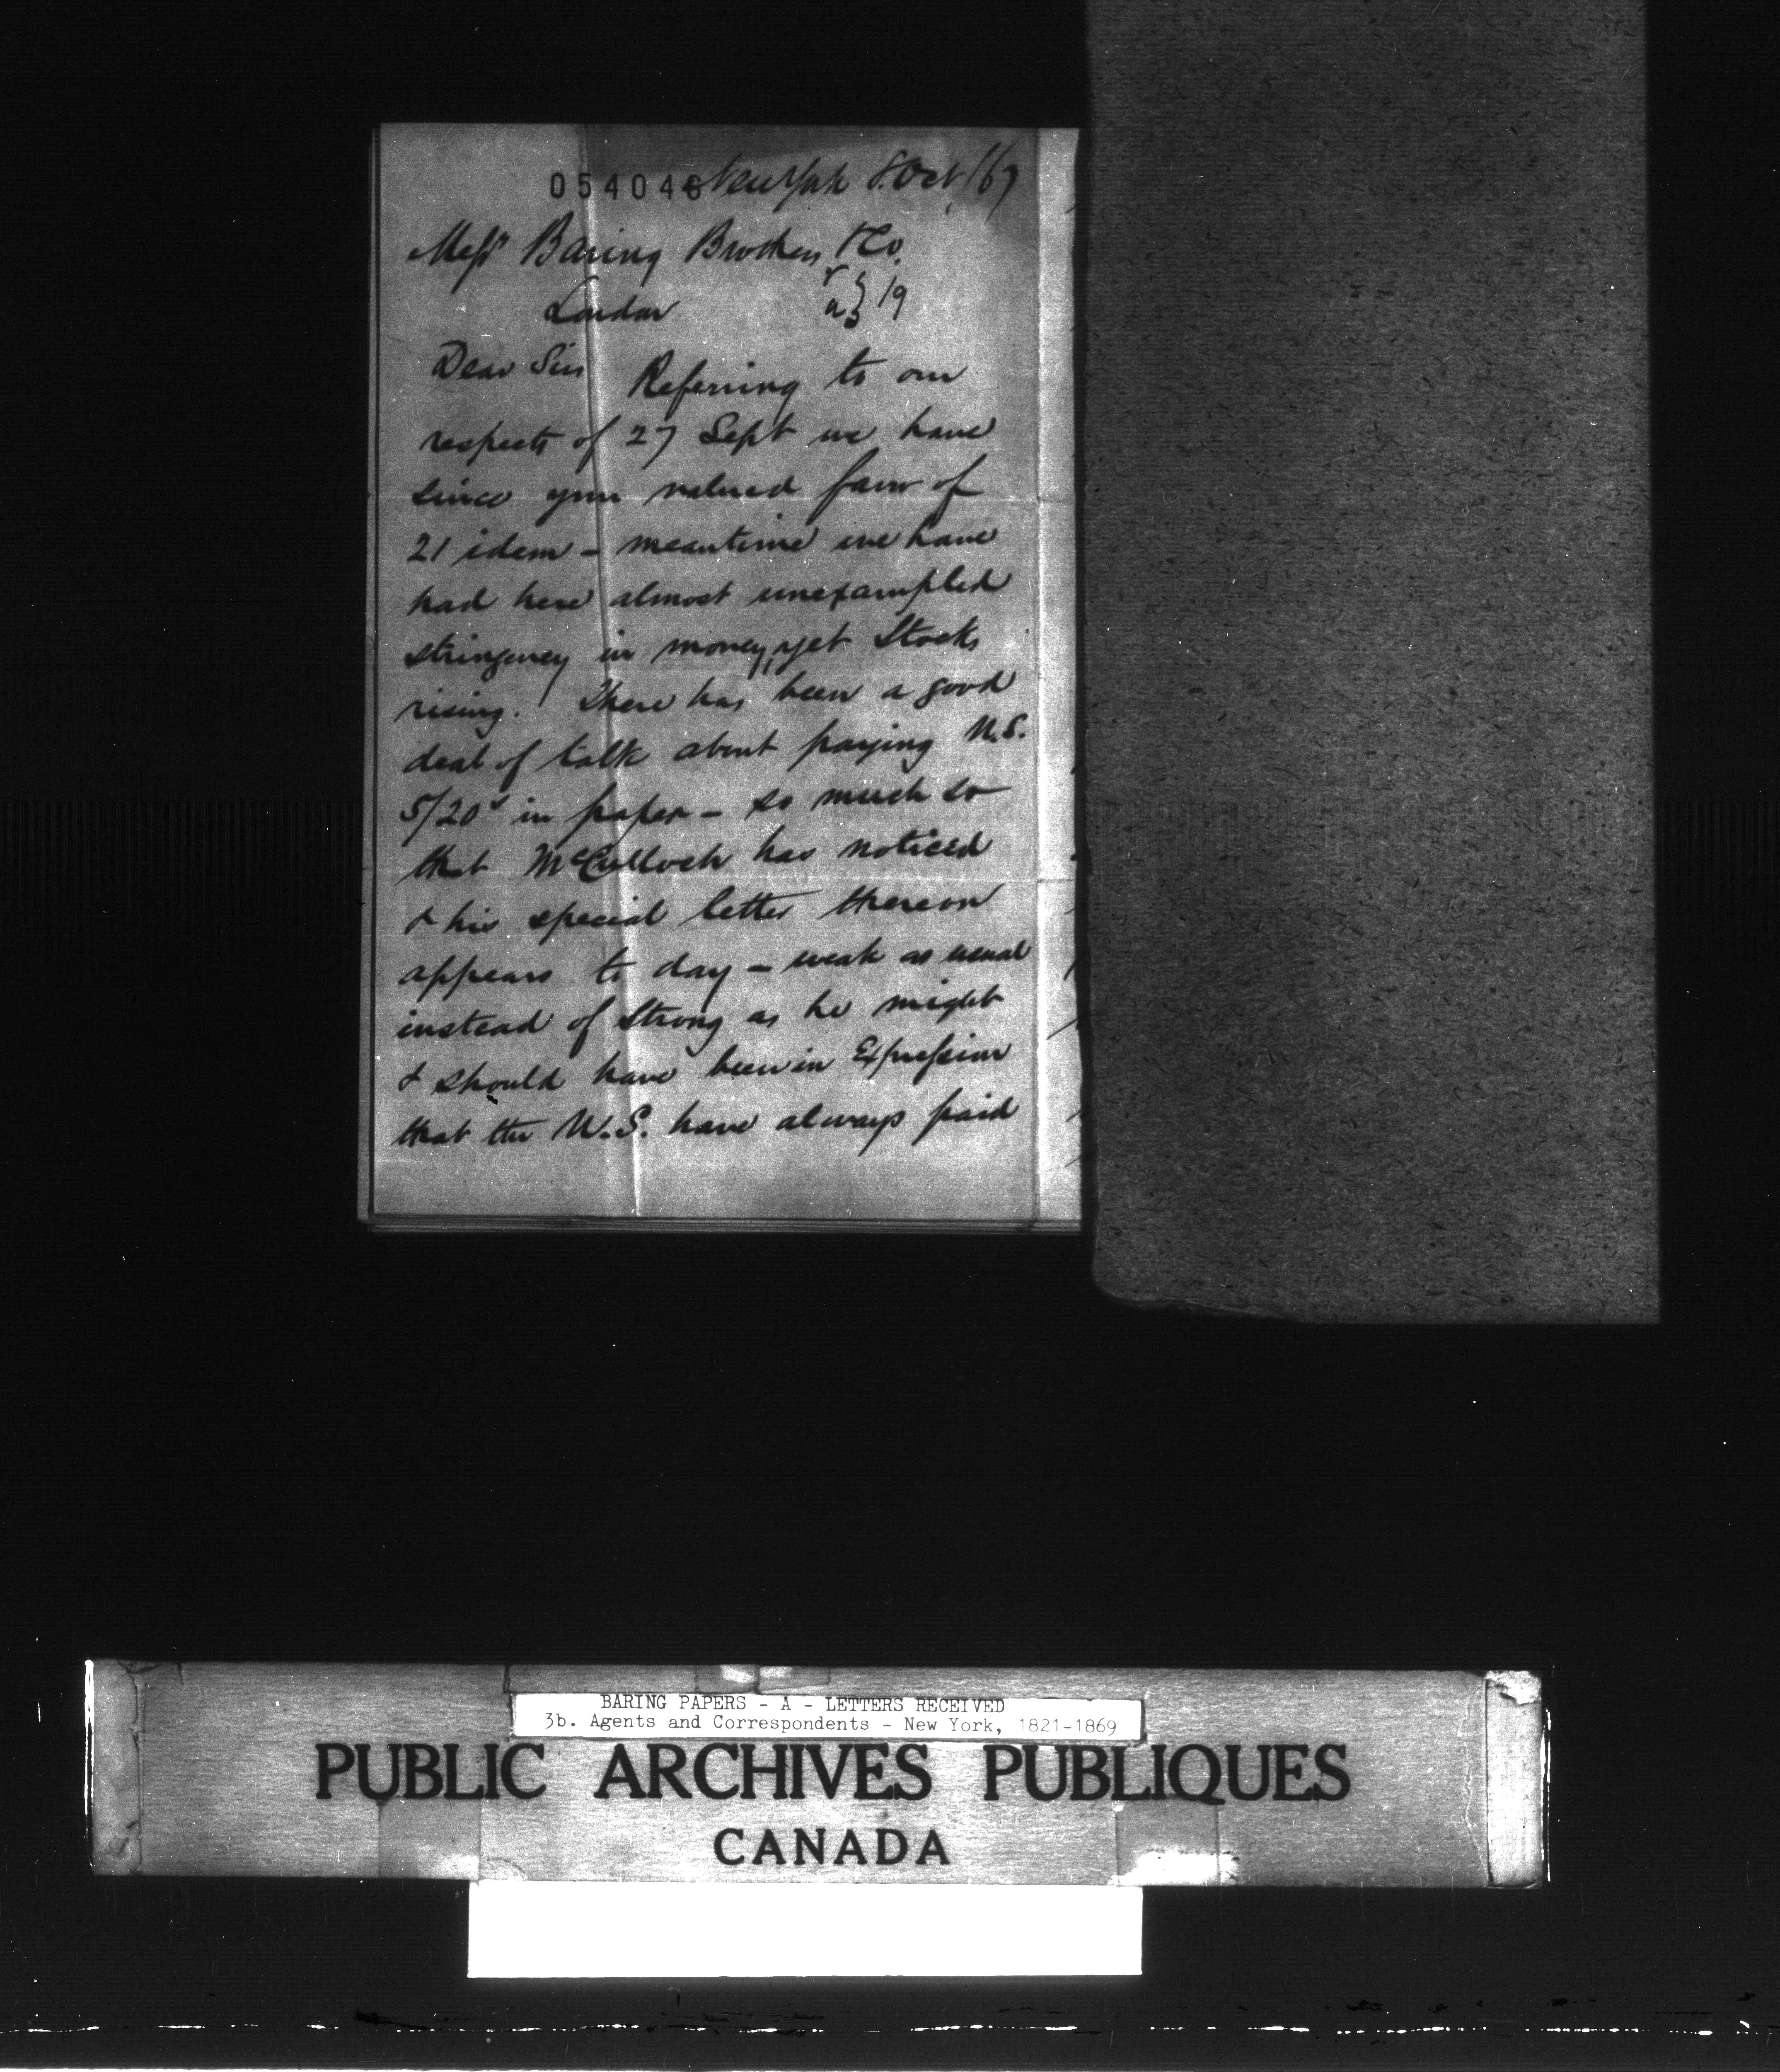 054048 New York 8. Oct /67
Messrs Baring Brothers & Co.
London
r
a } 19
Dear Sirs Referring to our
respects of 27 Sept we have
since your valued favor of
21 idem - meantime we have
had here almost unexampled
stringency in money, yet Stocks
rising. There has been a good
deal of talk about paying U.S.
5/20s in paper - so much so
that McCulloch has noticed
& his special letter thereon
appears to day - weak as usual
instead of strong as he might
& should have been in Expression
that the U.S. have always paid
BARING PAPERS - A - LETTERS RECEIVED
3b. Agents and Correspondents - New York, 1821-1869
PUBLIC ARCHIVES PUBLIQUES
CANADA